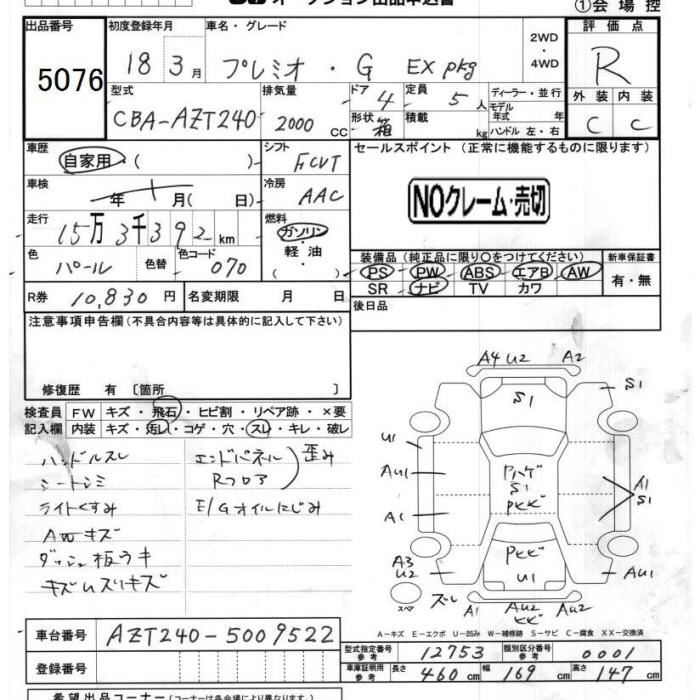 オークション出品申込書
①会場控
出品番号 5076
初度登録年月 18 3月
車名・グレード プレミオ・G EX pkg
2WD・4WD
評価点 R
型式 CBA-AZT240
排気量 2000 CC
ドア 4
形状 箱
定員 5人
積載 kg
ディーラー・並行
モデル年式 年式
ハンドル 左・右
外装 C
内装 C
車歴 自家用・( )
シフト FCVT
セールスポイント (正常に機能するものに限ります)
NOクレーム・売切
車検 年 月( 日)
冷房 AAC
走行 15万3千392km
燃料 ガソリン・軽油・( )
色 パール
色替
色コード 070
装備品 (純正品に限り○をつけてください)
PS・PW・ABS・エアB・AW
SR・ナビ・TV・カワ
新車保証書 有・無
R券 10,830円
名変期限 月 日
後日品
注意事項申告欄 (不具合内容等は具体的に記入して下さい)
修復歴 有 〔箇所 〕
検査員記入欄
FW キズ・飛石・ヒビ割・リペア跡・×要
内装 キズ・汚レ・コゲ・穴・スレ・キレ・破レ
ハンドルスレ
シートシミ
ライトくすみ
AWキズ
ダッシュ板ウキ
キズムスリキズ
エンドパネル
Rフロア
歪み
E/Gオイルにじみ
A4 U2 A2
S1 S1
U1
AU1
A1
Pハゲ
S1
Pヒビ
A1
S1
Pヒビ
U1
A3
U2
AU1
スペア
ズレ
A1 AU2 AU2
ヒビ
A-キズ E-エクボ U-凹み W-補修跡 S-サビ C-腐食 XX-交換済
車台番号 AZT240-5009522
登録番号
型式指定番号 参考 12753
類別区分番号 参考 0001
車庫証明用 参考 長さ 460cm 幅 169cm 高さ 147cm
希望出品コーナー (コーナーは各会場により異なります。)